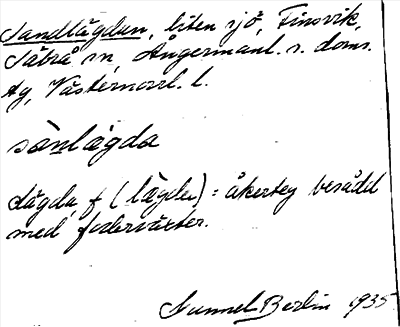 Sandlägdan, liten sjö, Finsvik,
Säbrå sn, Ångermanl. s. doms.
sg, Västernorrl. l.
sànlágda
Lägda, f (lägder) = åkerteg besådd
med foderväxter.
Gunnel Berlin 1935